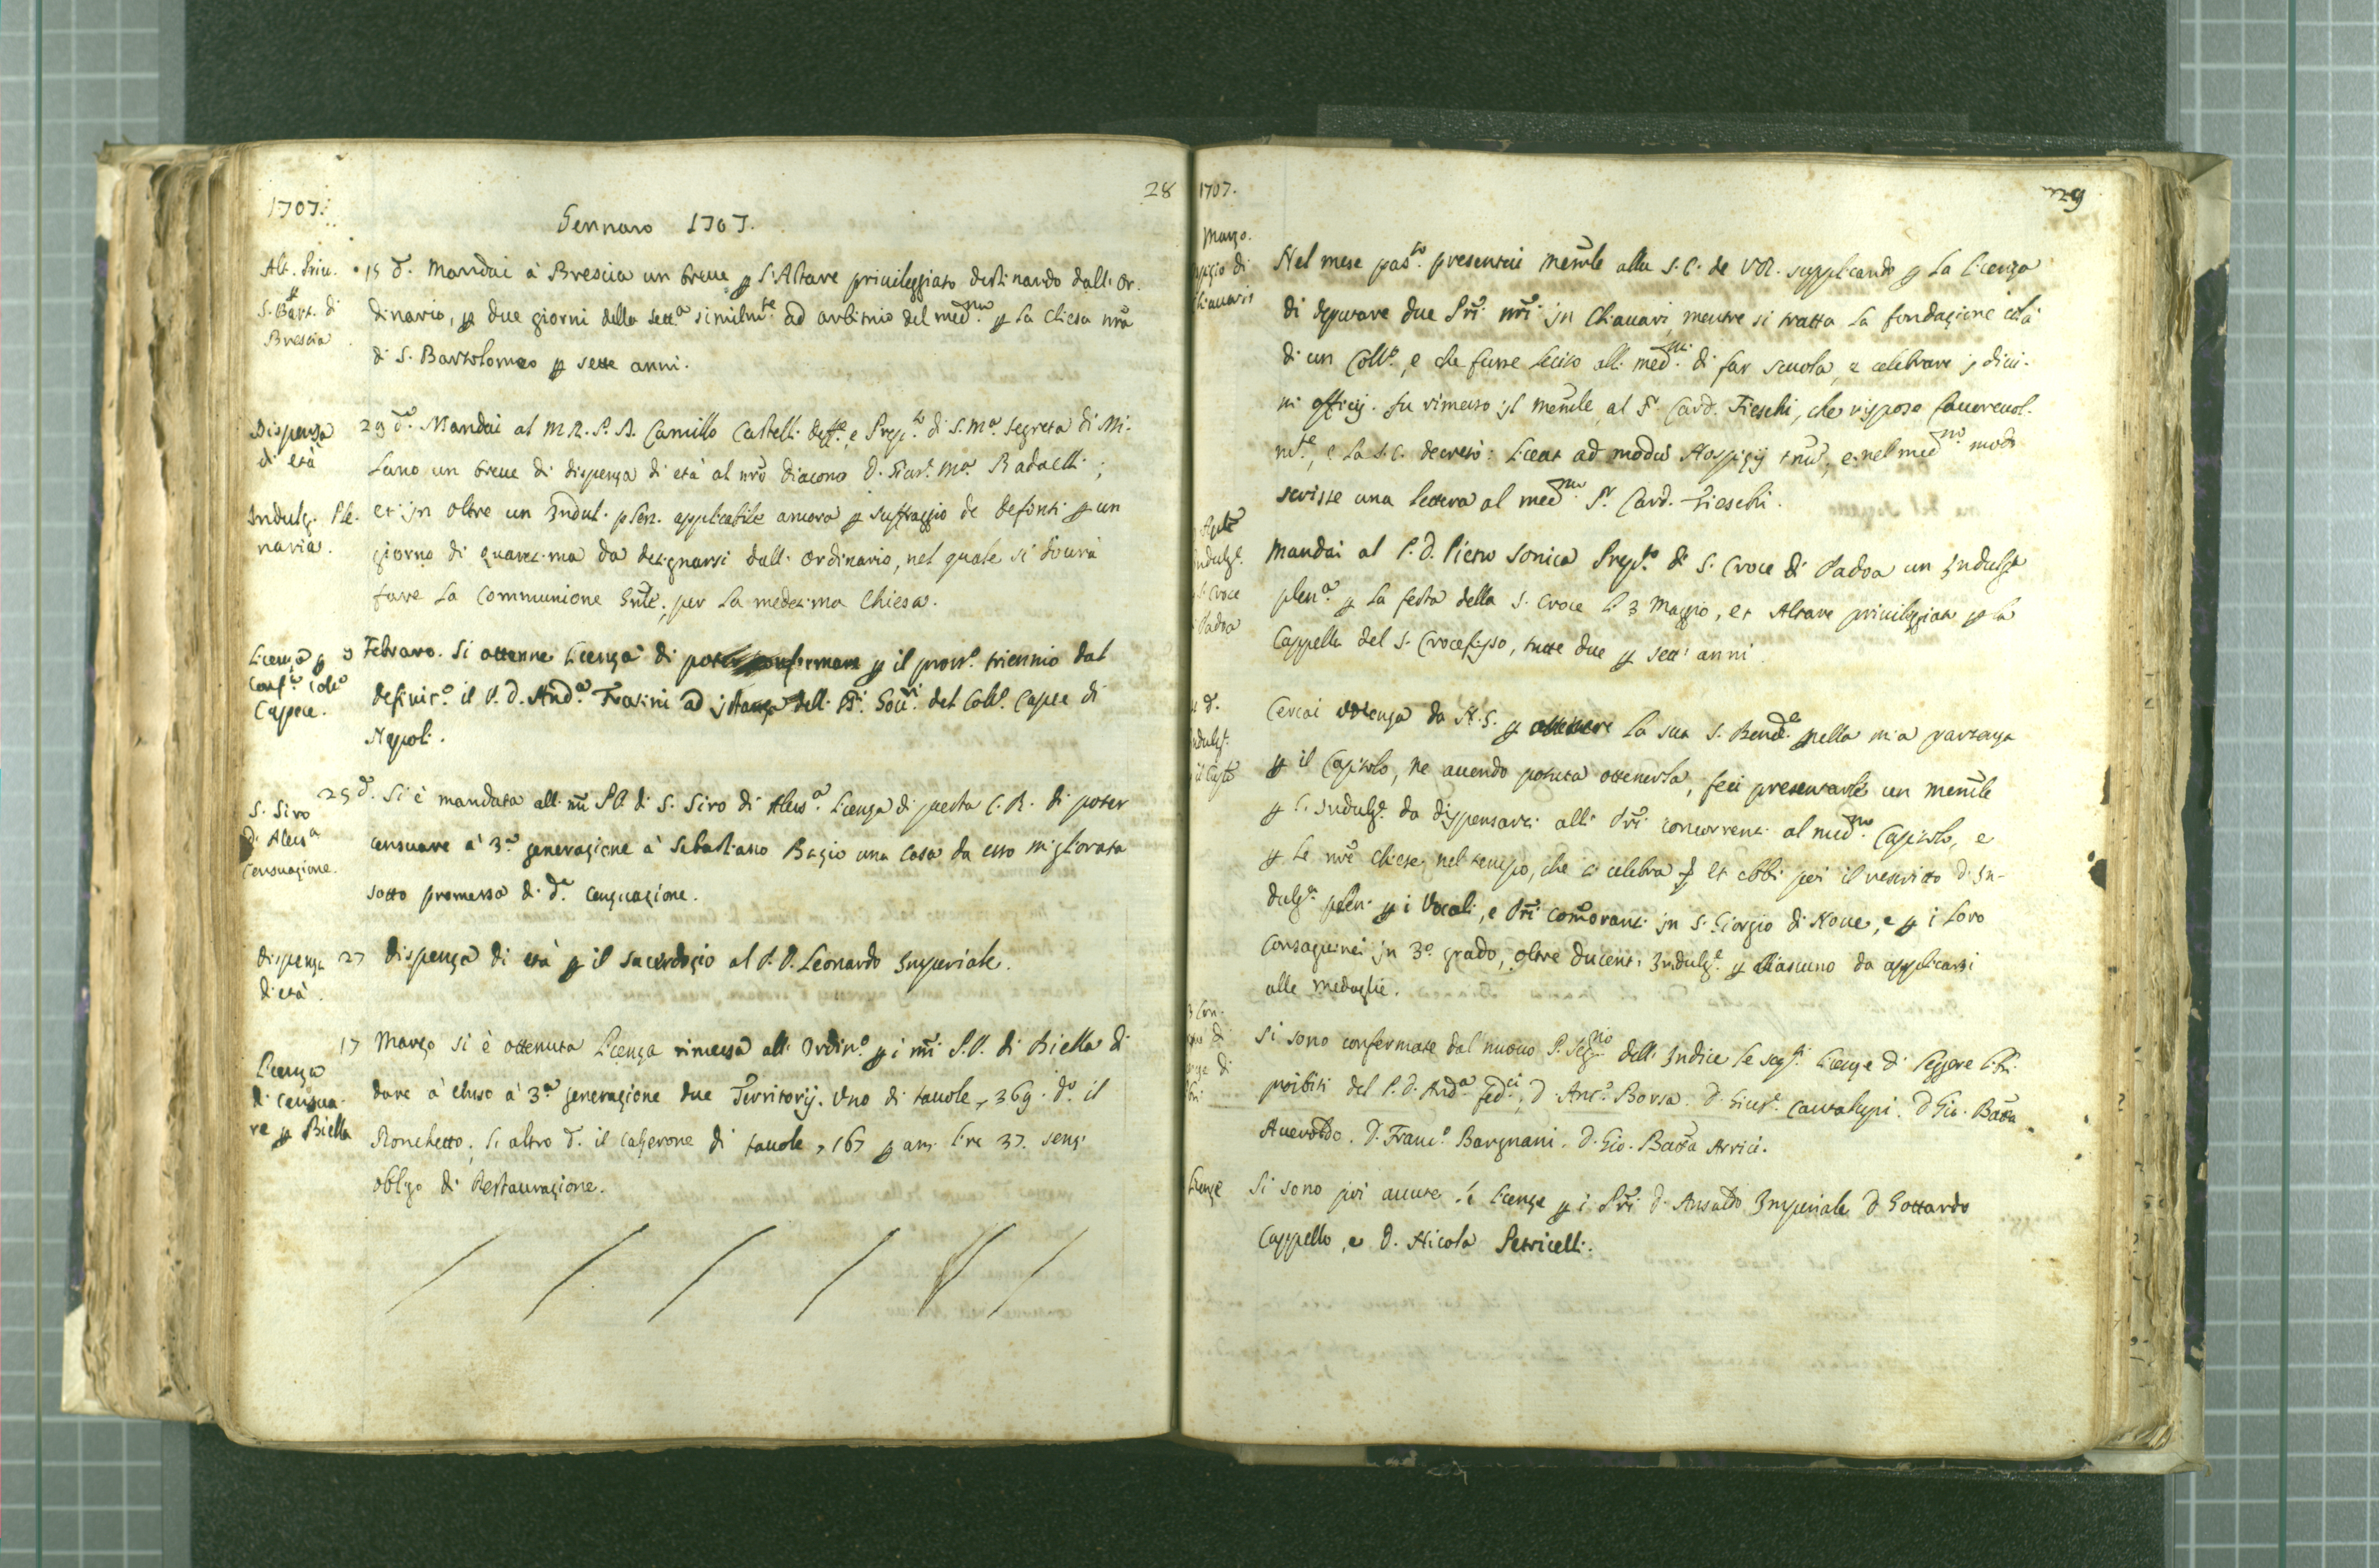 28
1707.
Gennaro 1707.
Alt. Priu.
S. Bart. di
Brescia
15 d.o Mandai à Brescia un breue p l'Altare priuileggiato destinando dall'Or-
dinario, p due giorni della sett.a similm.te ad arbitrio del med.mo p la chiesa nrã
di S. Bartolomeo p sette anni.
Dispenza
di età
29 d.o Mandai al M.R.P.D. Camillo Castelli deff.e, e Prep.to di S. M.a Segreta di Mi-
lano un breue di dispenza di età al nrõ Diacono D. M.a Radaelli;
Indulg. Ple-
naria.
et in oltre un Indul. plen. applicabile ancora p suffraggio de defonti p un
giorno di quaresima da designarsi dall'Ordinario, nel quale si dourà
fare la Communione Gñle. per la medesima Chiesa.
Licenza p
Coll.o
Capece.
9 Febraro. Si ottenne licenza di confermare p il pross.o triennio dal
definit.o il P. D. And.a Frasini ad istanza delli del Coll.o Capece di
Napoli.
S. Siro
di Aless.a
Censuazione.
25 d.o Si è mandata alli nrĩ PP. di S. Siro di Aless.a licenza di questa C. R. di poter
censuare à 3.a generazione à Sebastiano Bagio una casa da esso migliorata
sotto promessa di d.a censuazione.
Dispenza
di età.
27 Dispenza di età p il sacerdozio al P. D. Leonardo Imperiale.
Licenza
di censua-
re p Biella
17 Marzo si è ottenuta licenza rimessa all'Ordin.o p i nrĩ P.P. di Biella di
dare à à 3.a generazione due Territorij. Uno di tauole 369. d.o il
Ronchetto, l'altro d.o il di tauole 167 p lire 37. senz'
obligo di Restaurazione.
1707.
29
Marzo.
di
Chiauari
Nel mese pas.to presentai memle alla S. C. de VR. supplicando p la licenza
di deputare due Pri nri in Chiauari, mentre si tratta la fondazione colà
di un Coll.o, e che fusse lecito alli med.mi di far scuola, e celebrare i diui-
ni officij. Fu rimesso il memle al S.r Card. Fieschi, che rispose fauoreuol-
m.te, e la S.C. decretò: liceat ad modũ Hospitij tñũ, e nel med.mo modo
scrisse una lettera al med.mo S.r Card. Fieschi.
Aple
Indulg.
S. Croce
Padoa
Mandai al P. D. Pietro Sonica Prep.to di S. Croce di Padoa un Indulg.a
plen.a p la festa della S. Croce li 3 Maggio, et Altare priuileggiato p la
Cappella del S. Crocefisso, tutte due p sett' anni.
d.
Indulg.
Cercai udienza da N.S. p ottenere la sua S. Bened.e nella mia partenza
p il Capitolo, ne auendo potuta ottenerla, feci presentarle un memle
p l'Indulg.e da dispensarsi alli Pri concorrenti al med.mo Capitolo, e
p le nre chiese, nel tempo, che si celebra et ebbi poi il rescritto d'In-
dulg.a plen. p i Vocali, e Pri comoranti in S. Giorgio di Noue, e p i loro
Consaguinei in 3.o grado, oltre ducenti Indulg.e p ciascuno da applicarsi
alle medaglie.
Si sono confermate dal nuouo P. Seg.rio dell'Indice le seg.ti licenze di leggere libri
proibiti del P. D. And.a D. Ant.o Borsa. D. Gius.e Cantalupi. D. Gio. Batta
Aueroldo. D. Franc.o Bargnani. D. Gio. Batta Arrici.
Licenze
Si sono poi auute le licenze p i Pri D. Ansaldo Imperiale D. Gottardo
Cappello, e D. Nicola Petricelli.